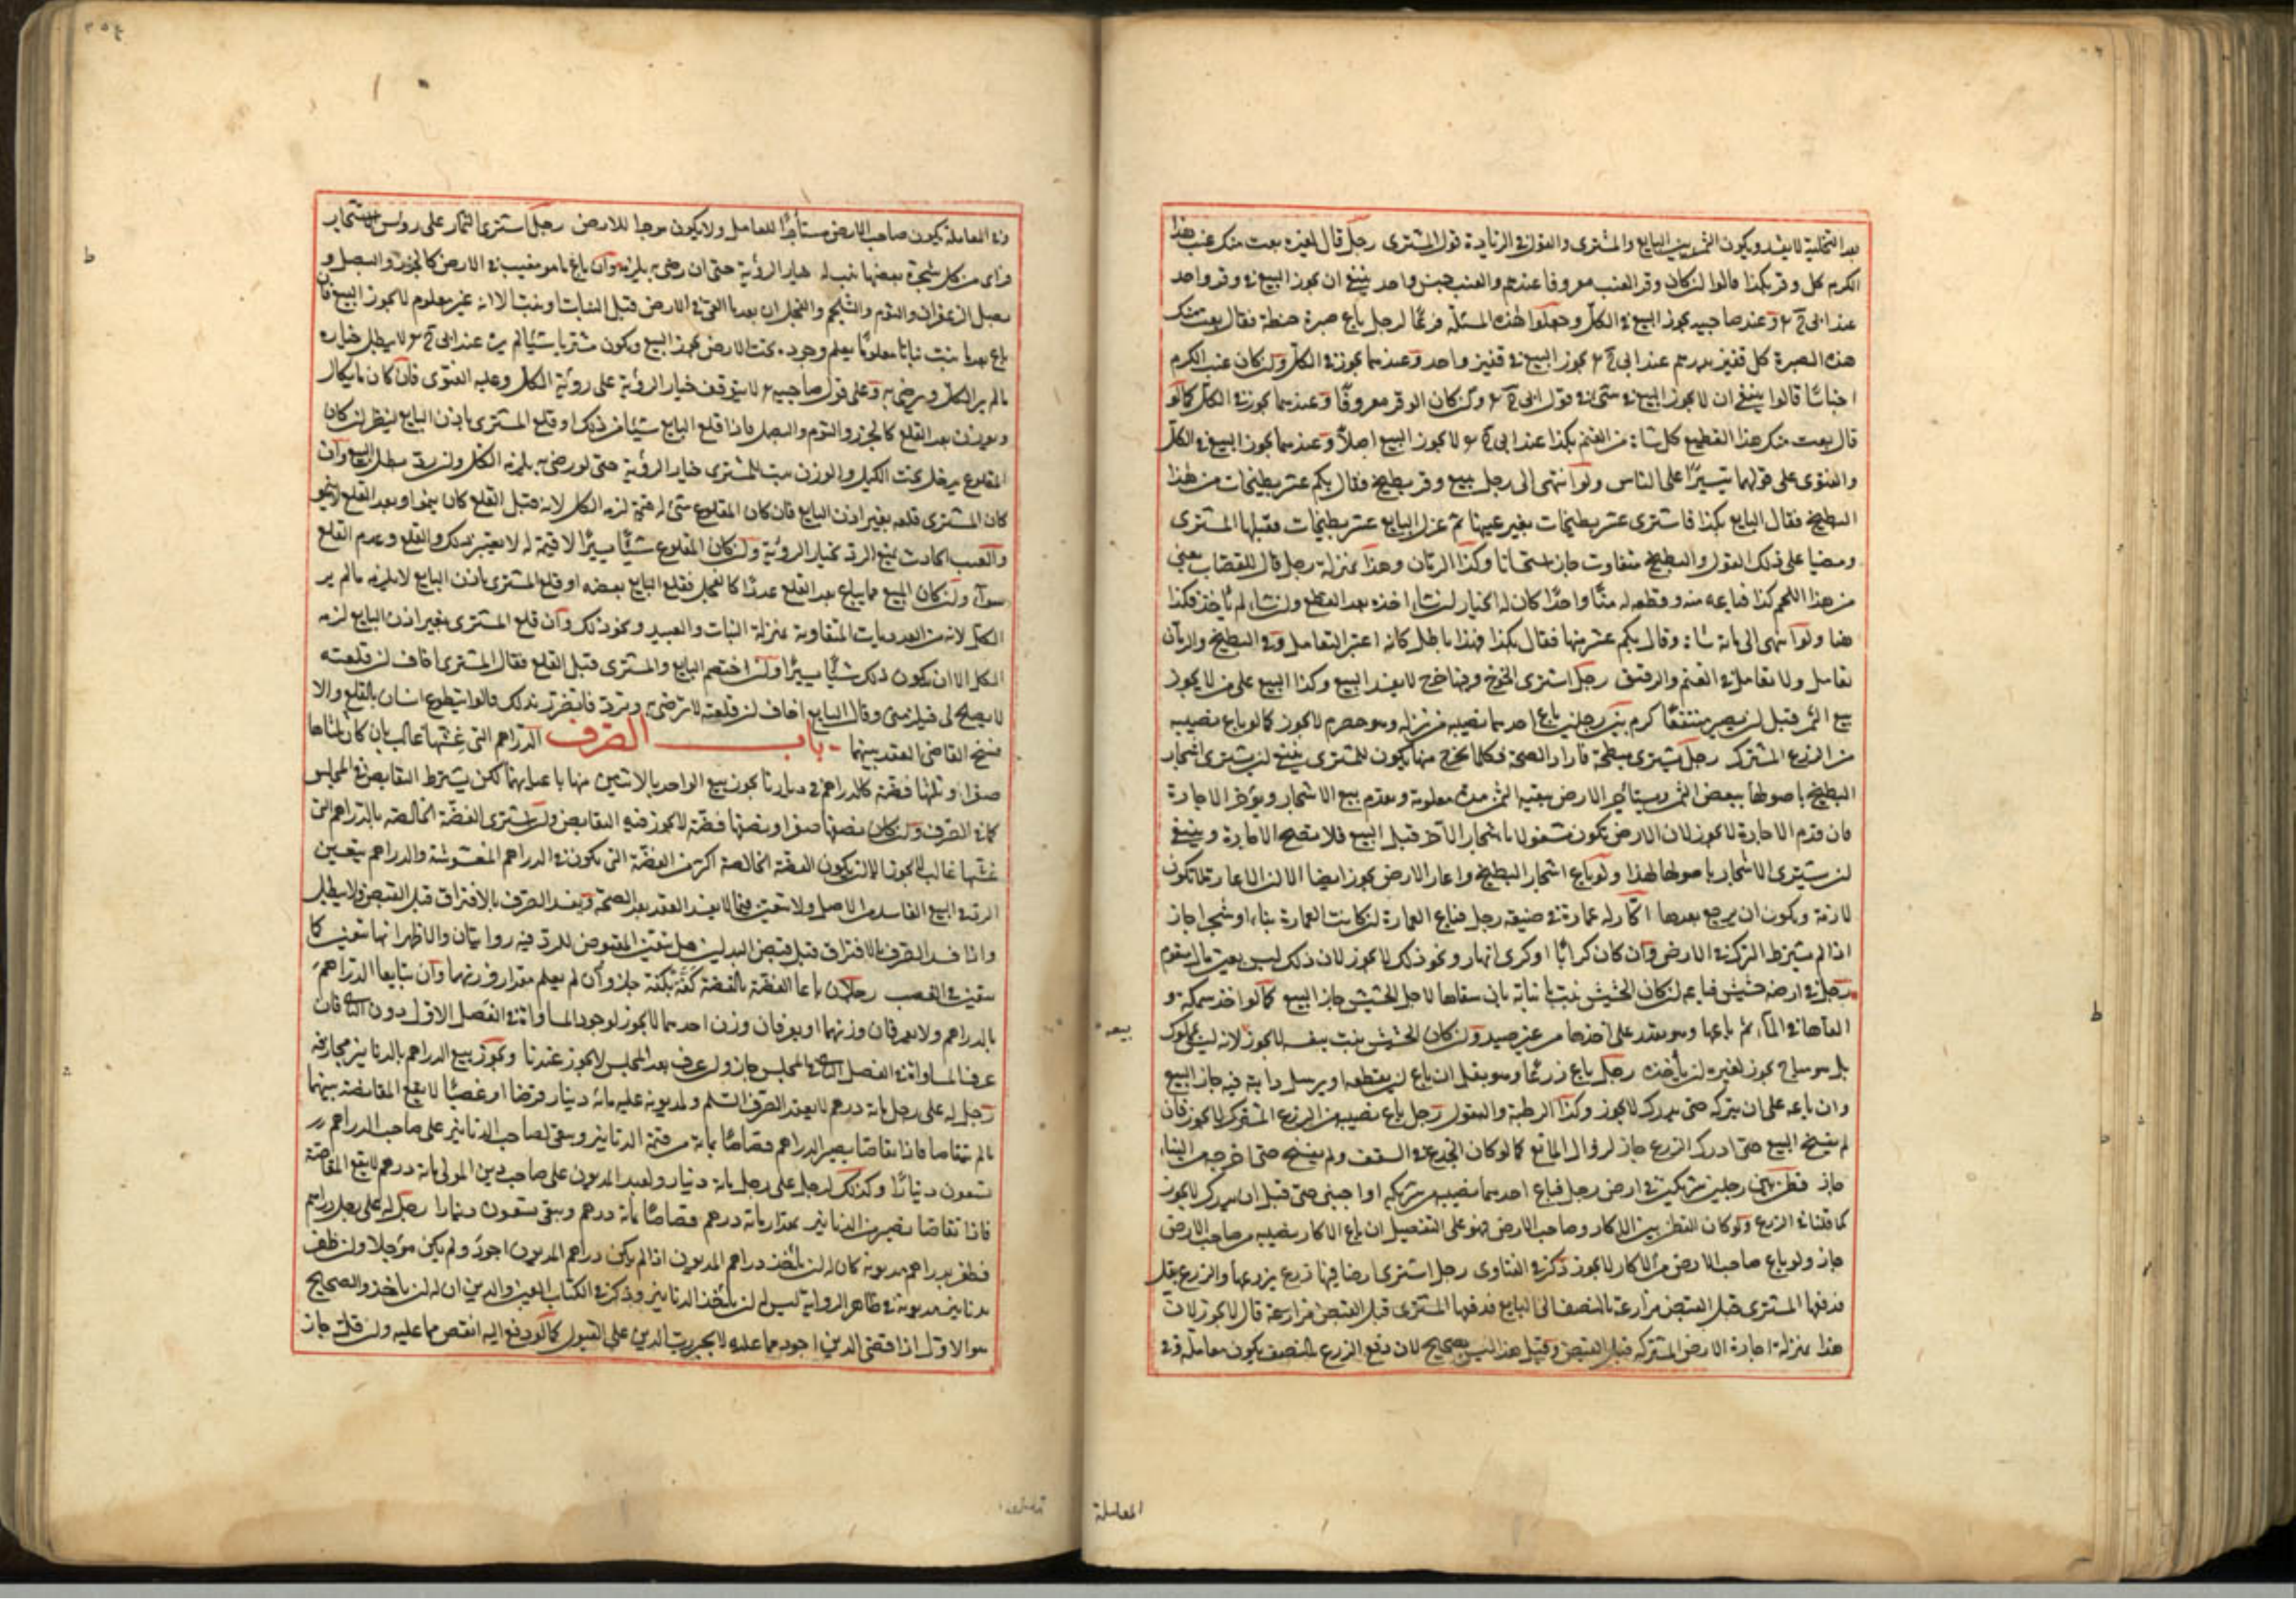 بعد التخلية لا يفسد ويكون الثمن بين البايع والمشترى والقول فى الزيادة قول المشترى رجل قال لغيره بعت منك عنب هذا
الكرم كل وقر بكذا قالوا ان كان وقر العنب معروفا عندهم والعنب جنس واحد ينبغى ان يجوز البيع فى وقر واحد
عند ابى ح وعند صاحبيه يجوز البيع فى الكل وجعلوا هذه المسئلة فرعا لرجل باع صبرة حنطة فقال بعت منك
هذه الصبرة كل قفيز بدرهم عند ابى ح يجوز البيع فى قفيز واحد وعندهما يجوز فى الكل وان كان عنب الكرم
اجناسا قالوا ينبغى ان لا يجوز البيع فى شئ فى قول ابى ح وان كان الوقر معروفا وعندهما يجوز فى الكل كما لو
قال بعت منك هذا القطيع كل شاة من الغنم بكذا عند ابى ح لا يجوز البيع اصلا وعندهما يجوز البيع فى الكل
والفتوى على قولهما تيسيرا على الناس ولو انتهى الى رجل يبيع وقر بطيخ فقال بكم عشر بطيخات من هذا
البطيخ فقال البايع بكذا فاشترى عشر بطيخات بغير عينها ثم عزل البايع عشر بطيخات فقبلها المشترى
ومضيا على ذلك القول والبطيخ متفاوت جاز استحسانا وكذا الرمان وهذا بمنزلة رجل قال للقصاب بعنى
من هذا اللحم كذا فباعه منه وقطعه له منا واحدا كان له الخيار ان شاء اخذه بعد القطع وان شاء لم يأخذ فكذا
هنا ولو انتهى الى مائة شاة وقال بكم عشر منها فقال بكذا فهذا باطل كانه اعتبر التعامل وفى البطيخ والرمان
تعامل ولا تعامل فى الغنم والرقيق رجل اشترى الخوخ وفيها خوخ لا يفسد البيع وكذا البيع على من لا يجوز
بيع الثمر قبل ان يصير منتفعا كرم بين رجلين باع احدهما نصيبه من نزله وهو حصرم لا يجوز كما لو باع نصيبه
من الزرع المشترك رجل يشترى مبطخة فاراد الصحة فكلما يخرج منها يكون للمشترى ينبغى ان يشترى اشجار
البطيخ باصولها ببعض الثمن ويستأجر الارض ببقية الثمن مدة معلومة ويقدم بيع الاشجار ويؤخر الاجارة
فان قدم الاجارة لا يجوز لان الارض تكون مشغولة باشجار الآجر قبل البيع فلا تصح الاجارة وينبغى
ان يشترى الاشجار باصولها لهذا ولو باع اشجار البطيخ واعار الارض يجوز ايضا الا ان الاعارة لا تكون
لازمة ويكون ان يرجع بعدها اكار له عمارة فى ضيعة رجل فباع العمارة ان كانت العمارة بناء او شجرا جاز
اذا لم يشترط الترك فى الارض وان كان كرابا او كرى انهار ونحو ذلك لا يجوز لان ذلك ليس بعين مال متقوم
رجل فى ارضه حشيش فباعه ان كان الحشيش نبت بانباته بان سقاها لاجل الحشيش جاز البيع كما لو اخذ سمكة و
القاها فى الماء ثم باعها وهو يقدر على اخذها من غير صيد وان كان الحشيش ينبت بنفسه لا يجوز لانه ليس بمملوك
بل هو مباح يجوز لغيره ان يأخذه رجل باع زرعا وهو بقل ان باع ليقطعه او يرسل دابة فيه جاز البيع
وان باعه على ان يتركه حتى يدرك لا يجوز وكذا الرطبة والبقول رجل باع نصيبه من الزرع المشترك لا يجوز فان
لم يفسخ البيع حتى ادرك الزرع جاز لزوال المانع كما لو كان الجذع فى السقف ولم يفسخ حتى اخرجه من البناء
جاز قطن بين رجلين شريكين فى ارض رجل فباع احدهما نصيبه من شريكه او اجنبى حتى قبل ان يدرك لا يجوز
كما قلنا فى الزرع ولو كان القطن بين الاكار وصاحب الارض فهو على التفصيل ان باع الاكار نصيبه من صاحب الارض
جاز ولو باع صاحب الارض من الاكار لا يجوز ذكر فى الفتاوى رجل اشترى ارضا فيها زرع يزرعها والزرع بقل
فدفعها المشترى قبل القبض مزارعة بالنصف الى البايع فدفعها المشترى قبل القبض مزارعة قال لا يجوز لان
هذا بمنزلة اجارة الارض المشتركة قبل القبض وقيل هذا ليس بصحيح لان دفع الزرع بالنصف يكون معاملة وفى
بيعه
المعاملة
وفى المعاملة يكون صاحب الارض مستأجرا للعامل ولا يكون موجرا للارض رجل اشترى الثمار على رؤس الاشجار
فرأى من كل شجرة بعضها يثبت له خيار الرؤية حتى ان رضى به يلزمه وان باع ما هو مغيب فى الارض كالجزر والبصل و
بصل الزعفران والثوم والشلجم والفجل ان بعد ما القى فى الارض قبل النبات او نبت الا انه غير معلوم لا يجوز البيع فان
باع بعد ما نبت نباتا معلوما يعلم وجوده تحت الارض يجوز البيع ويكون مشتريا شيئا لم يره عند ابى ح لا يبطل خياره
ما لم ير الكل ويرضى به وعلى قول صاحبيه لا يتوقف خيار الرؤية على رؤية الكل وعليه الفتوى فان كان مما يكال
ويوزن بعد القلع كالجزر والثوم والبصل فاذا قلع البايع شيئا من ذلك او قلع المشترى باذن البايع ينظر ان كان
المقلوع يدخل تحت الكيل والوزن يثبت للمشترى خيار الرؤية حتى لو رضى به يلزمه الكل وان رد بطل البيع وان
كان المشترى قلعه بغير اذن البايع فان كان المقلوع شئ له قيمة لزمه الكل لانه قبل القلع كان ينمو او بعد القلع لا ينمو
والعيب الحادث يمنع الرد بخيار الرؤية وان كان المقلوع شيئا يسيرا لا قيمة له لا يعتبر ذلك والقلع وعدم القلع
سواء وان كان المبيع مما يباع بعد القلع عددا كالفجل فقلع البايع بعضه او قلع المشترى باذن البايع لا يلزمه ما لم ير
الكل لانه من العدديات المتفاوتة بمنزلة الثياب والعبيد ونحو ذلك وان قلع المشترى بغير اذن البايع لزمه
الكل الا ان يكون ذلك شيئا يسيرا وان اختصم البايع والمشترى قبل القلع فقال المشترى اخاف ان قلعته
لا يصلح لى فيلزمنى وقال البايع اخاف ان قلعته لا ترضى به وترده فاتضرر بذلك قالوا يتطوع انسان بالقلع والا
فسخ القاضى العقد بينهما باب الصرف الدراهم التى غشها غالب بان كان ثلثاها
صفرا وثلثها فضة كالدراهم فى ديارنا يجوز بيع الواحد بالاثنين منها باعيانها لكن يشترط التقابض فى المجلس
كما فى الصرف وان كان نصفها صفرا ونصفها فضة لا يجوز فيه التقابض وان اشترى الفضة الخالصة بالدراهم التى
غشها غالب لا يجوز الا ان يكون الفضة الخالصة اكثر من الفضة التى تكون فى الدراهم المغشوشة والدراهم يتعين
الرد فى البيع الفاسد من الاصل ولا تتعين فيما لا يفسد العقد بعد الصحة ويفسد الصرف بالافتراق قبل القبض ولا يبطل
واذا فسد الصرف بالافتراق قبل قبض البدلين هل يتعين المقبوض للرد فيه روايتان والاظهر انها تتعين كما
يتعين فى الغصب رجلان باعا الفضة بالفضة كفة بكفة جاز وان لم يعلم مقدار وزنهما وان تبايعا الدراهم
بالدراهم ولا يعرفان وزنهما او يعرفان وزن احدهما لا يجوز لوجود المساواة فى الفصل الاول دون الثانى فان
عرفا المساواة فى الفصل الثانى فى المجلس جاز وان عرف بعد المجلس لا يجوز عندنا ويجوز بيع الدراهم بالدنانير مجازفة
رجل له على رجل مائة درهم لا بعقد الصرف والسلم ولمديونه عليه مائة دينار قرضا او غصبا لا يقع المقاصة بينهما
ما لم يتقاصا فاذا تقاصا يصير الدراهم قصاصا بمائة من قيمة الدنانير ويبقى لصاحب الدنانير على صاحب الدراهم
تسعون دينارا وكذلك لرجل على رجل مائة دينار ولعبد المديون على صاحب دين المولى مائة درهم لا يقع المقاصة
فاذا تقاصا يصير من الدنانير بمقدار مائة درهم قصاصا بمائة درهم ويبقى تسعون دينارا رجل له على رجل دراهم
فظفر بدراهم مديونه كان له ان يأخذ دراهم المديون اذا لم يكن دراهم المديون اجود ولم يكن مؤجلا وان ظفر
بدنانير مديونه فى ظاهر الرواية ليس له ان يأخذ الدنانير وذكر فى الكتاب العين والدين ان له ان يأخذ والصحيح
هو الاول اذا قضى الدين اجود مما عليه لا يجبر رب الدين على القبول كما لو دفع اليه انقص مما عليه وان قبل جاز